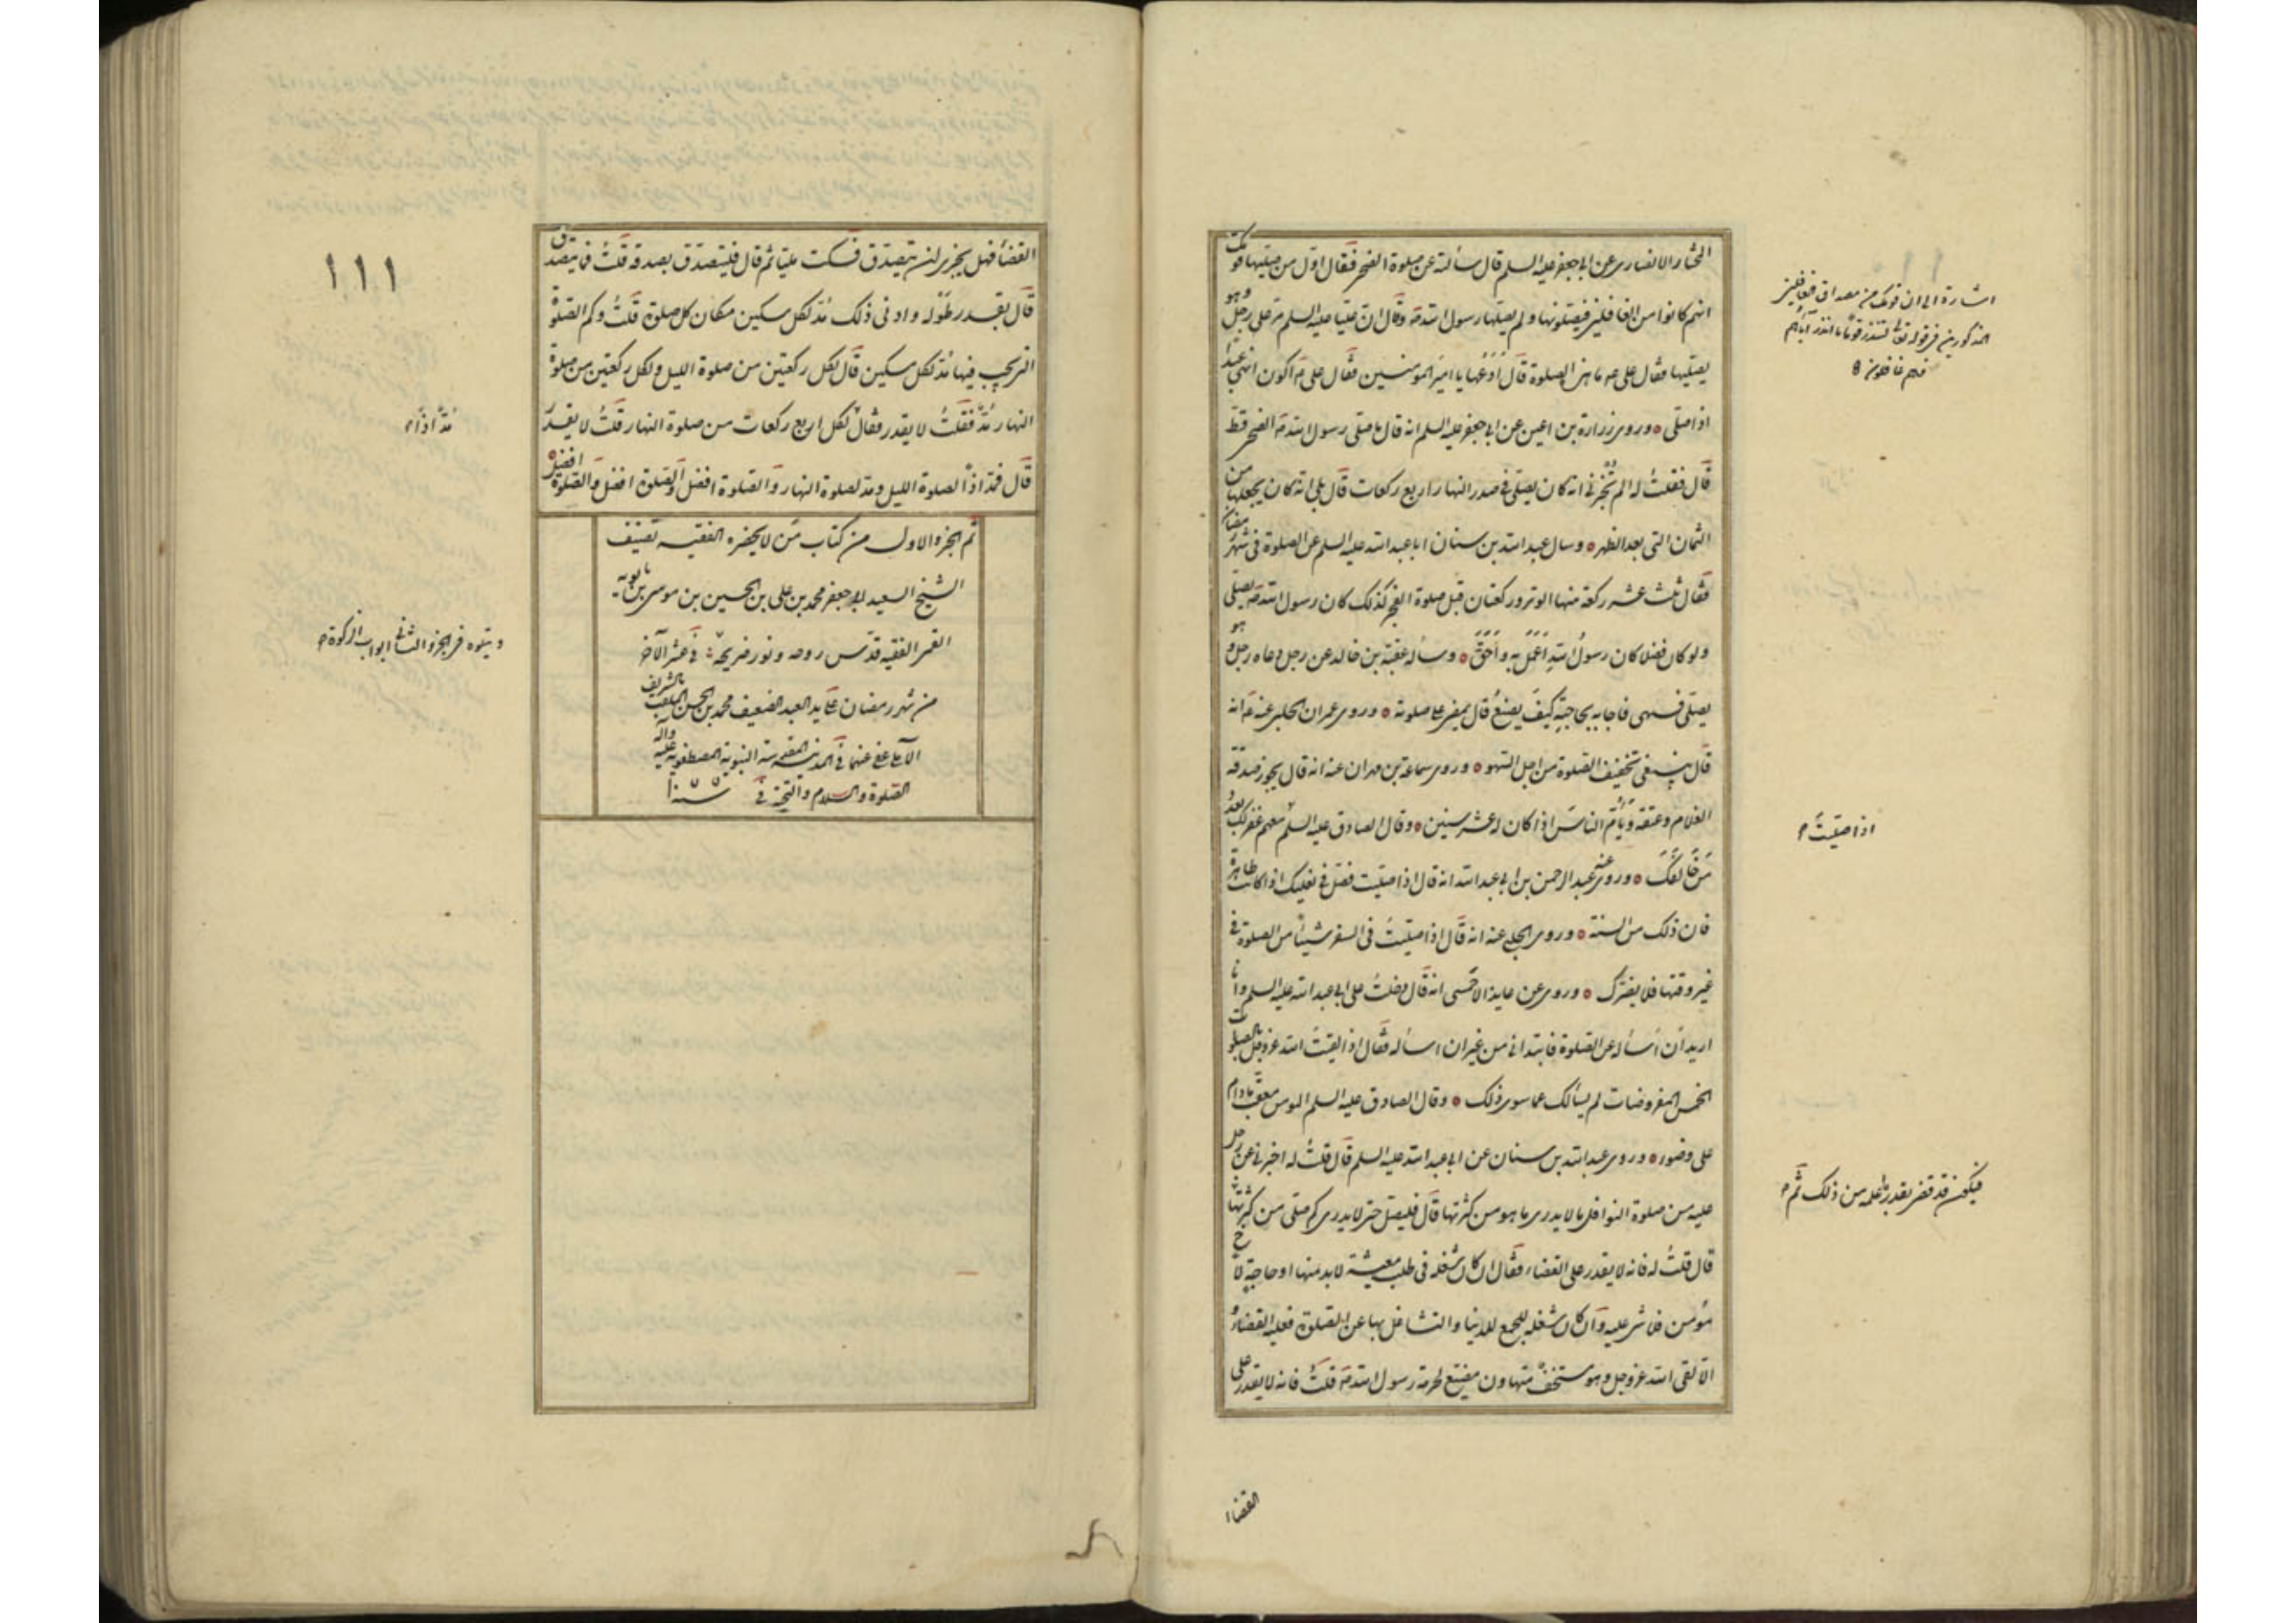 الانصاري عن ابي جعفر عليه السلم قال سألته عن صلوة الضحى فقال اول من صليها قومك
انهم كانوا من الغافلين فيصلونها ولم يصلها رسول الله ص وقال ان عليا عليه السلم مر على رجل وهو
يصليها فقال على ع ما هذه الصلوة قال أدعها يا امير المؤمنين فقال على ع أكون انهى عبدا
اذا صلى وروى زرارة بن اعين عن ابي جعفر عليه السلم انه قال ما صلى رسول الله ص الضحى قط
قال فقلت له الم تخبرني انه كان يصلي في صدر النهار اربع ركعات قال بلى انه كان يجعلها من
الثمان التي بعد الظهر وسال عبد الله بن سنان ابا عبد الله عليه السلم عن الصلوة في شهر رمضان
فقال ثلث عشرة ركعة منها الوتر وركعتان قبل صلوة الفجر كذلك كان رسول الله ص يصلي
ولو كان فضلا كان رسول الله أعمل به وأحق وساله عقبة بن خالد عن رجل دعاه رجل وهو
يصلى فسهى فاجابه بحاجته كيف يصنع قال يمضي على صلوته وروى عمران الحلبي عنه ع انه
قال ينبغي تخفيف الصلوة من اجل السهو وروى سماعة بن مهران عنه انه قال يجوز صدقة
الغلام وعتقه ويأم الناس اذا كان له عشر سنين وقال الصادق عليه السلم
من وروى عنه عبد الرحمن بن ابي عبد الله انه قال اذا صليت فصل في نعليك اذا كانت طاهرة
فان ذلك من السنة وروى الحلبي عنه انه قال اذا صليت في السفر شيئا من الصلوة في
غير وقتها فلا يضرك وروى عن عايذ الاحمسى انه قال دخلت على ابي عبد الله عليه السلم وانا
اريد ان أسأله عن الصلوة فابتداني من غير ان اسأله فقال اذا لقيت الله عز وجل بالصلوات
الخمس المفروضات لم يسألك عما سوى ذلك وقال الصادق عليه السلم المؤمن معقب مادام
على وضوء وروى عبد الله بن سنان عن ابي عبد الله عليه السلم قال قلت له اخبرني عن رجل
عليه من صلوة النوافل ما لا يدرى ما هو من كثرتها قال فليصل حتى لا يدرى كم صلى من كثرتها
قال قلت له فانه لا يقدر على القضاء فقال ان كان شغله في طلب معيشة لا بد منها او حاجة لاخ
مؤمن فلا شى عليه وان كان شغله للجمع للدنيا والتشاغل بها عن الصلوة فعليه القضاء و
الا لقى الله عز وجل وهو مستخف متهاون مضيع لحرمة رسول الله ص قلت فانه لا يقدر على
اشارة الى ان قومك من مصداق
المذكورين في قوله تعالى لتنذر قوما ما انذر آباؤهم
فهم غافلون
اذا صليت
فيكون قد قضى بقدر ما علمه من ذلك ثم
القضاء
١١١
القضاء فهل يجزى ان يتصدق فسكت مليا ثم قال فليتصدق بصدقة قلت فما يتصدق
قال بقدر طوله وادنى ذلك مد لكل مسكين مكان كل صلوة قلت وكم الصلوة
التي يجب فيها مد لكل مسكين قال لكل ركعتين من صلوة الليل ولكل ركعتين من صلوة
النهار مد فقلت لا يقدر فقال لكل اربع ركعات من صلوة النهار قلت لا يقدر
قال فمد اذا لصلوة الليل ومد لصلوة النهار والصلوة افضل والصلوة افضل والصلوة افضل
مد اذا
تم الجزء الاول من كتاب من لا يحضره الفقيه تصنيف
الشيخ السعيد ابي جعفر محمد بن على بن الحسين بن موسى بن بابويه
القمى الفقيه قدس روحه ونور ضريحه في عشر الآخر
من شهر رمضان على يد العبد الضعيف محمد بن الحسن الملقب بالشريف
عفى عنهما في المدينة المقدسة النبوية المصطفوية عليه وآله
الصلوة والسلام والتحية في سنة
ويتلوه في الجزء الثاني ابواب الزكوة